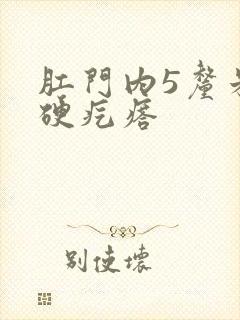 肛門内5釐
硬疙瘩
别使壞